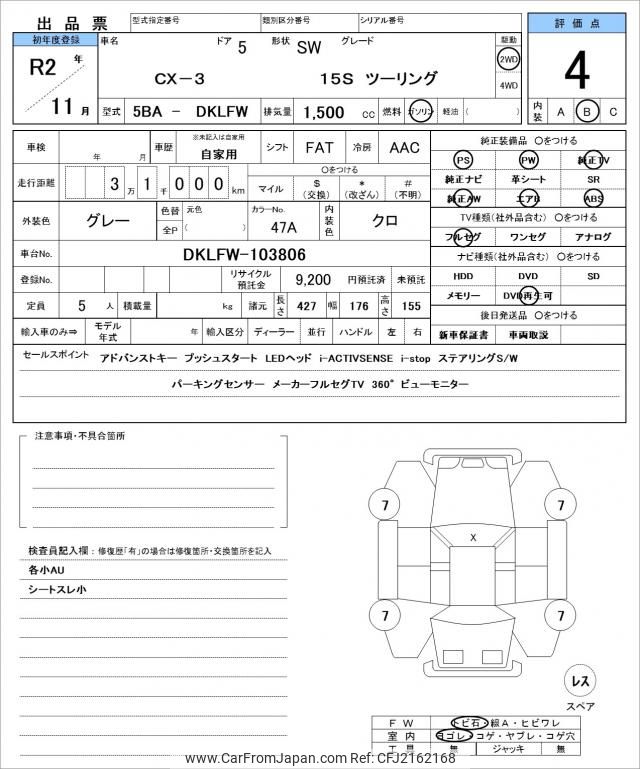 出品票
型式指定番号 類別区分番号 シリアル番号
評価点
初年度登録
R2 年
11 月
車名 ドア 5 形状 SW グレード
CX-3 15S ツーリング
駆動
2WD
4WD
4
内装 A B C
型式 5BA - DKLFW 排気量 1,500 cc 燃料 ガソリン 軽油 ( )
車検 年 月 車歴 ※未記入は自家用 自家用 シフト FAT 冷房 AAC
走行距離 3 万 1 千 0 0 0 km
〇をつける
マイル $ (交換) * (改ざん) # (不明)
外装色 グレー 色替 全P 元色 ( ) カラーNo. 47A 内装色 クロ
車台No. DKLFW-103806
登録No. リサイクル預託金 9,200 円預託済 未預託
定員 5 人 積載量 kg 諸元 長さ 427 幅 176 高さ 155
輸入車のみ⇒ モデル年式 年 輸入区分 ディーラー 並行 ハンドル 左 右
純正装備品 〇をつける
PS PW 純正TV
純正ナビ 革シート SR
純正AW エアB ABS
TV種類(社外品含む) 〇をつける
フルセグ ワンセグ アナログ
ナビ種類(社外品含む) 〇をつける
HDD DVD SD
メモリー DVD再生可
後日発送品 〇をつける
新車保証書 車両取説
セールスポイント アドバンストキー プッシュスタート LEDヘッド i-ACTIVSENSE i-stop ステアリングS/W
パーキングセンサー メーカーフルセグTV 360°ビューモニター
注意事項・不具合箇所
検査員記入欄：修復歴「有」の場合は修復箇所・交換箇所を記入
各小AU
シートスレ小
7 7
X
7 7
レス
スペア
FW トビ石・線A・ヒビワレ
室内 ヨゴレ・コゲ・ヤブレ・コゲ穴
工具 無 ジャッキ 無
www.CarFromJapan.com Ref: CFJ2162168